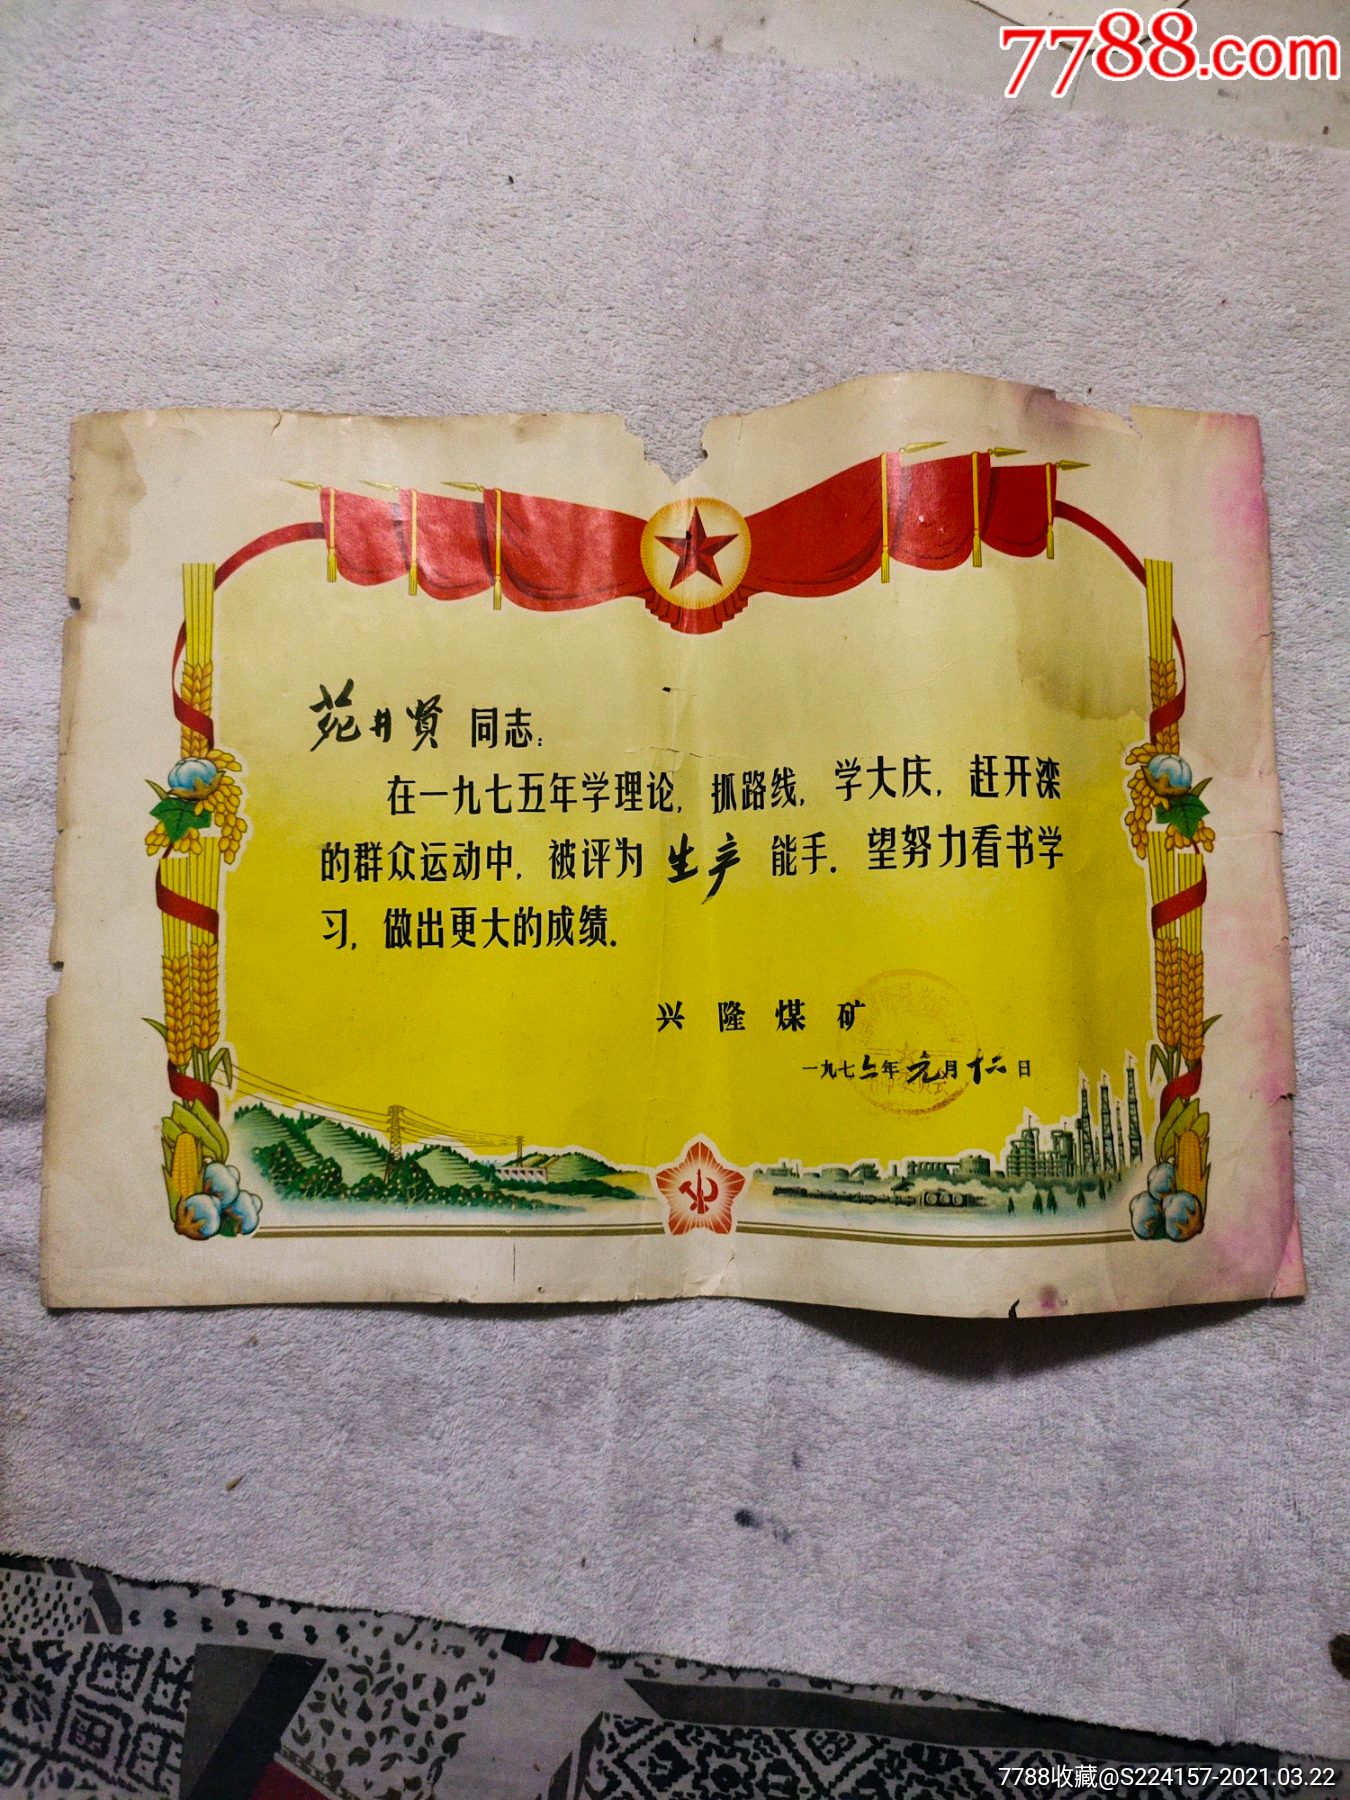 7788.com
苑井贤 同志：
在一九七五年学理论，抓路线，学大庆，赶开滦
的群众运动中，被评为 生产 能手。望努力看书学
习，做出更大的成绩。
兴隆煤矿
一九七六年元月十二日
7788收藏@S224157-2021.03.22